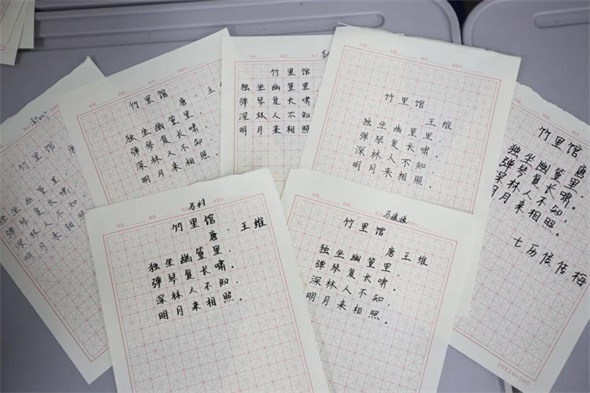 竹里馆
唐
独坐幽篁里,
弹琴复长啸。
深林人不知,
明月来相照。
竹里馆
唐、王维
独坐幽篁里,
弹琴复长啸。
深林人不知,
明月来相照。
竹里馆
独坐幽篁里,
弹琴复长啸。
深林人不知,
明月来相照。
竹里馆
王维
独坐幽篁里,
弹琴复长啸。
深林人不知,
明月来相照。
竹里馆
唐
独坐幽篁里,
弹琴复长啸。
深林人不知,
明月来相照。
竹里馆
唐、王维
独坐幽篁里,
弹琴复长啸。
深林人不知,
明月来相照。
竹里馆
唐 王维
独坐幽篁里,
弹琴复长啸。
深林人不知,
明月来相照。